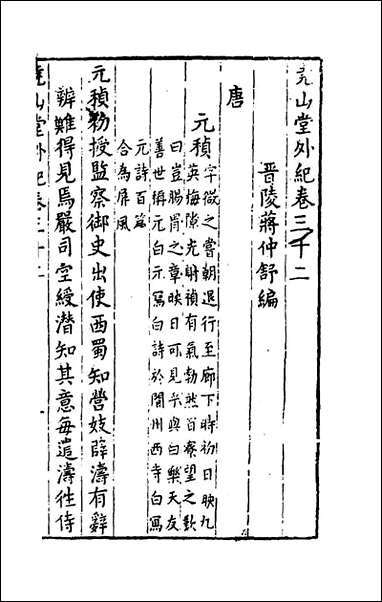 尭山堂外紀卷三十二
晋陵蔣仲舒編
唐
元稹
字微之嘗朝退行至廊下時初日映九
英梅隙光射稹有氣勃然百寮望之歎
曰豈腸胃之章映日可見乎與白樂天友
善世稱元白示寫白詩於閬州西寺白寫
元詩百篇
合為屏風
元稹初授監察御史出使西蜀知營妓薛濤有辭
辨難得見焉嚴司空綬潜知其意每遣濤往侍
尭山堂外紀卷三十二
一